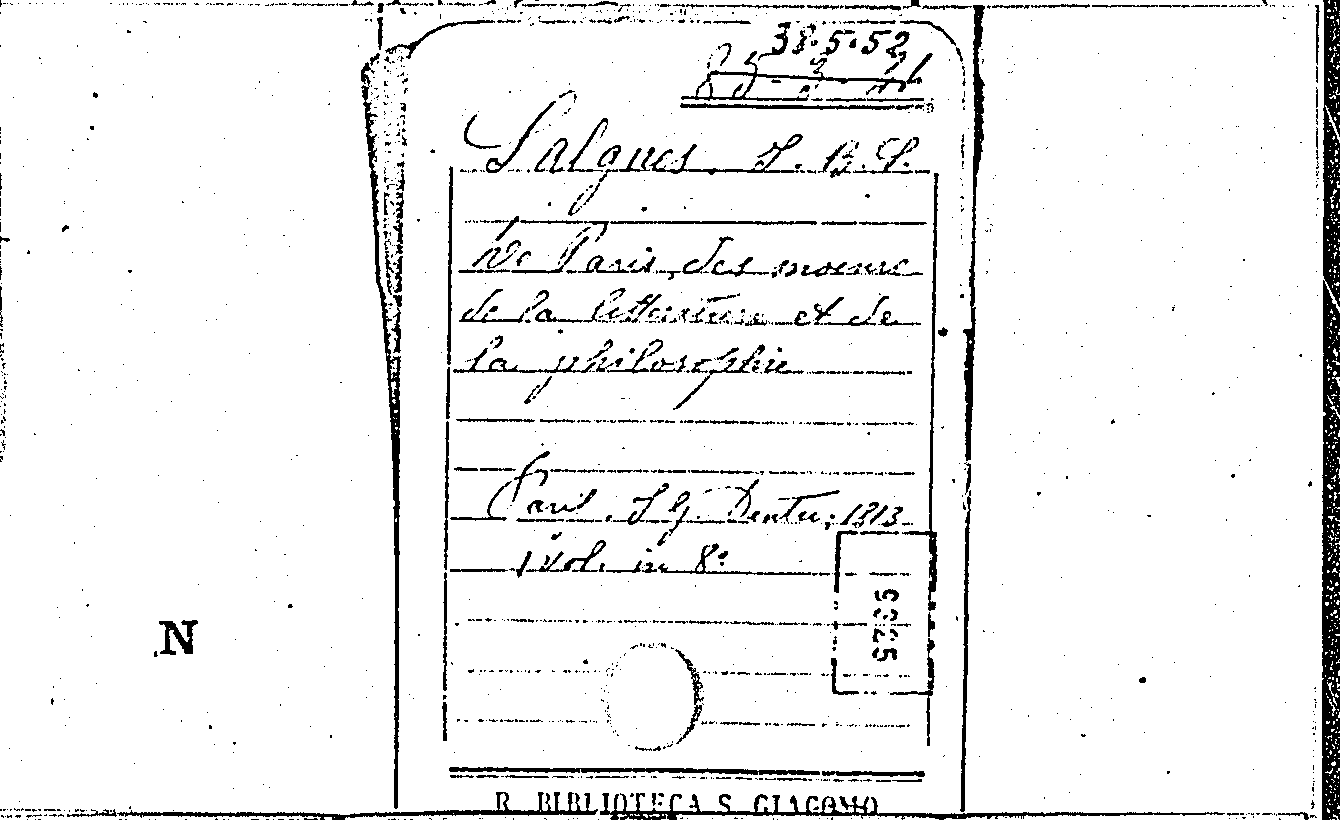 38.5.52
Salgues. J. B. S.
De Paris, des moeurs
de la litterature et de
la philosophie
Paris. J G. Dentu, 1813
1 vol. in 8º
N
R. BIBLIOTECA S. GIACOMO